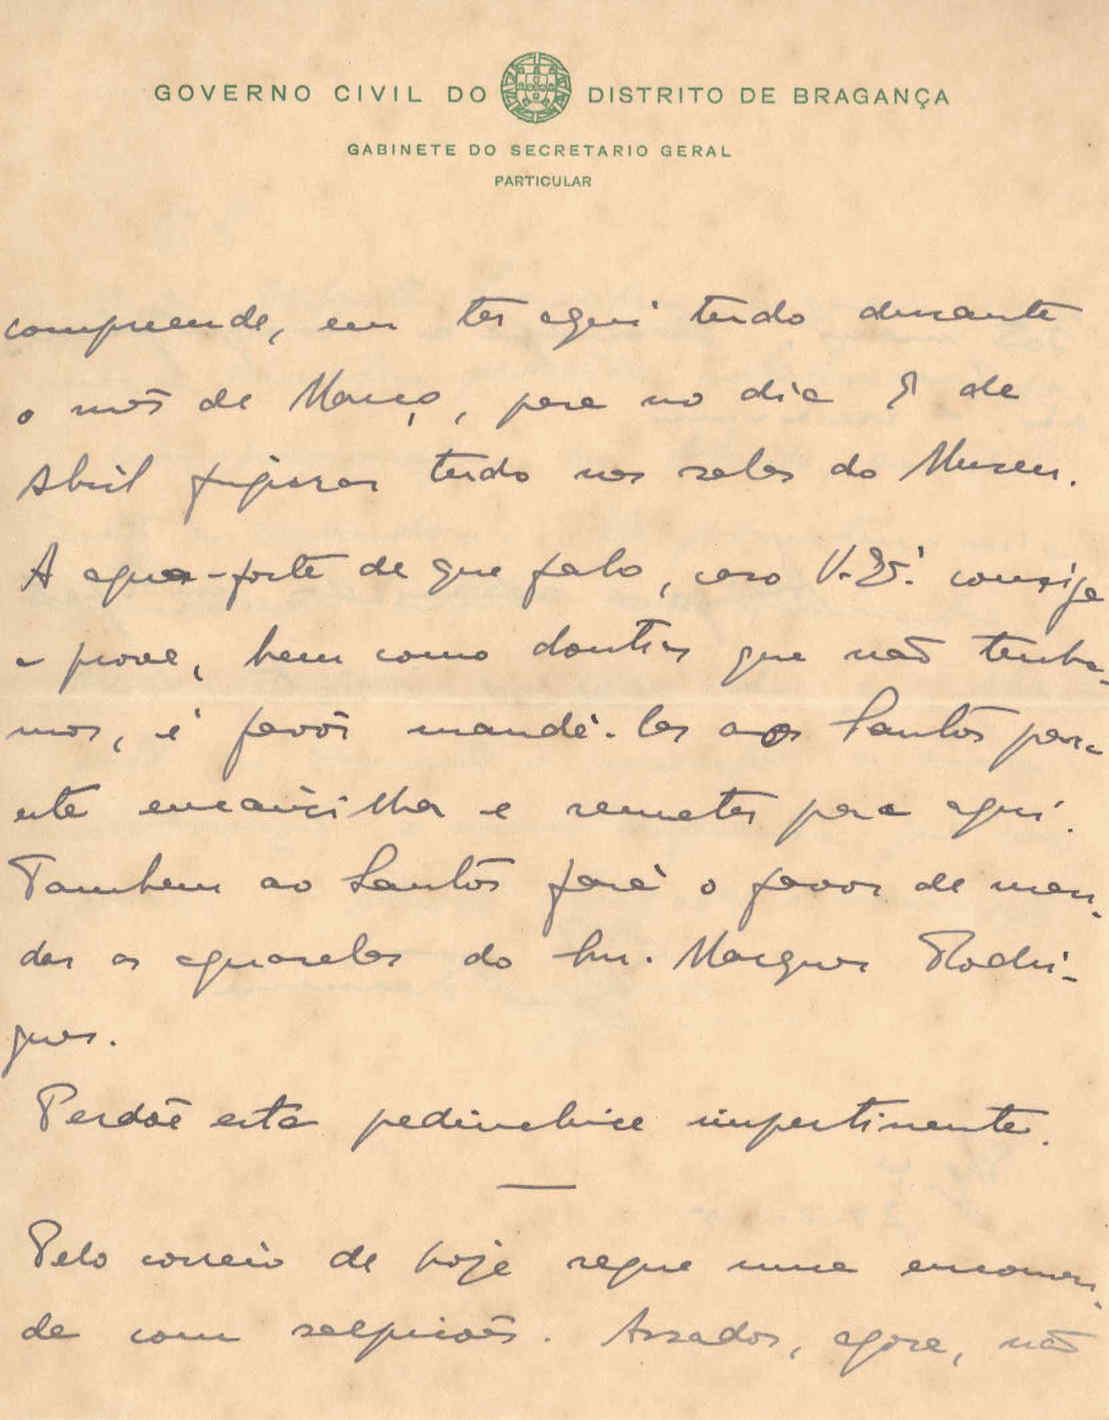 GOVERNO CIVIL DO DISTRITO DE BRAGANÇA
GABINETE DO SECRETARIO GERAL
PARTICULAR
compreende, em ter aqui tudo durante
o mês de Março, para no dia 8 de
Abril figurar tudo nas salas do Museu.
A agua-forte de que falo, caso V. Ex.ª consiga
a prova, bem como doutras que não tenha-
mos, é favôr mandá-las ao Santos para
este encaixilhar e remeter para aqui.
Tambem ao Santos fará o favor de man-
dar as aguarelas do Snr. Marques Rodri-
gues.
Perdôe esta pedinchice impertinente.
Pelo correio de hoje segue uma encomen-
da com salpicões. Assados, agora, não